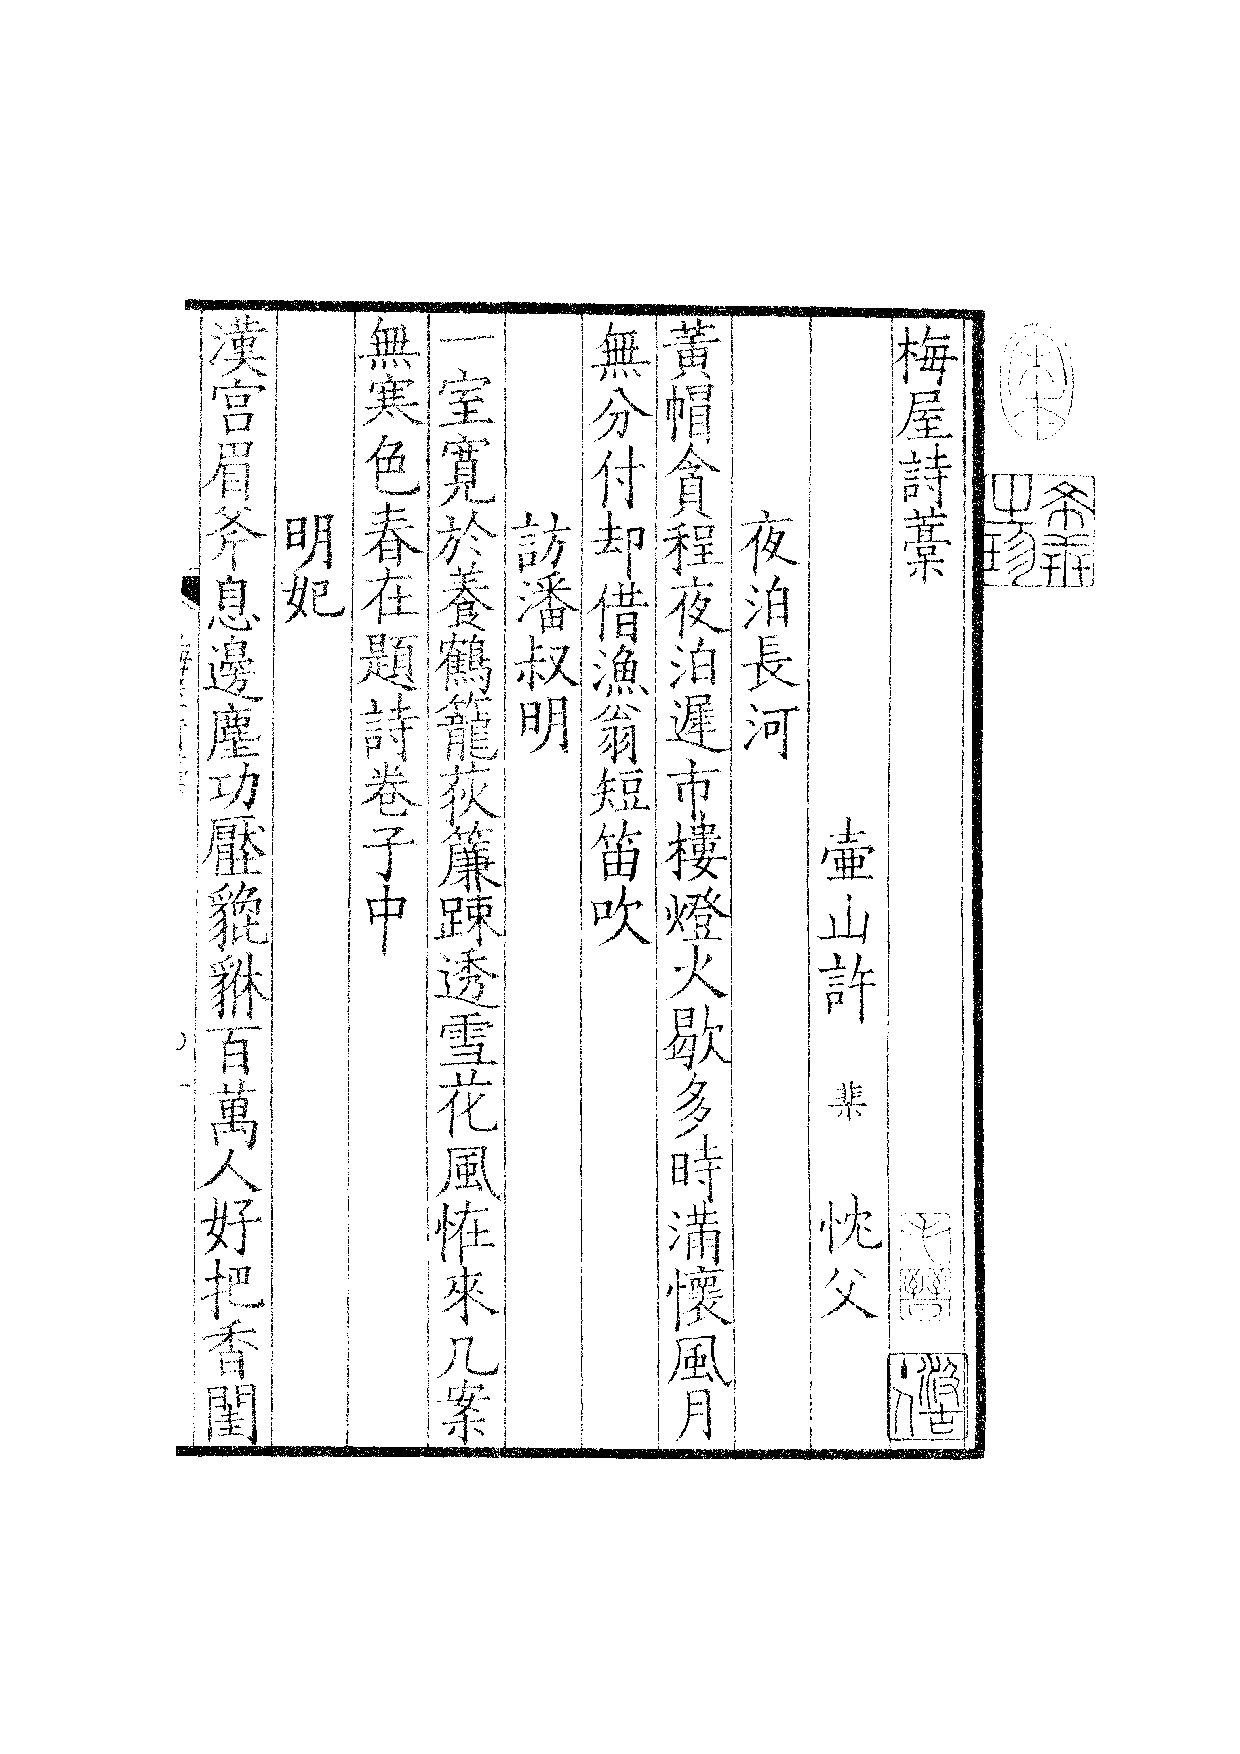 梅屋詩藁
壷山許 棐 忱父
夜泊長河
黃帽貪程夜泊遲市樓燈火歇多時滿懷風月
無分付却借漁翁短笛吹
訪潘叔明
一室寬於養鶴籠荻簾踈透雪花風恠來几案
無寒色春在題詩卷子中
明妃
漢宮眉斧息邊塵功壓貔貅百萬人好把香閨